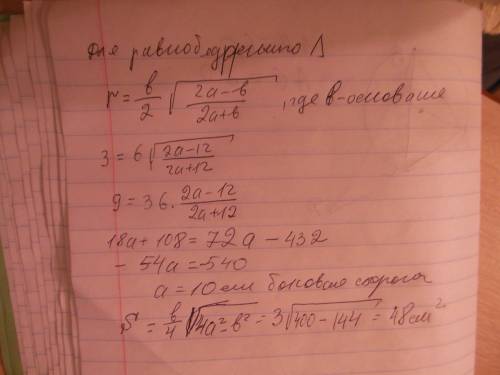 Для равнобедренного Δ
r = в/2 √((2a-в)/(2a+в)), где в-основание
3 = 6 √((2a-12)/(2a+12))
9 = 36 · (2a-12)/(2a+12)
18a + 108 = 72a - 432
- 54a = -540
a = 10 см боковая сторона
S = в/4 √(4a²-в²) = 3√(400-144) = 48 см²